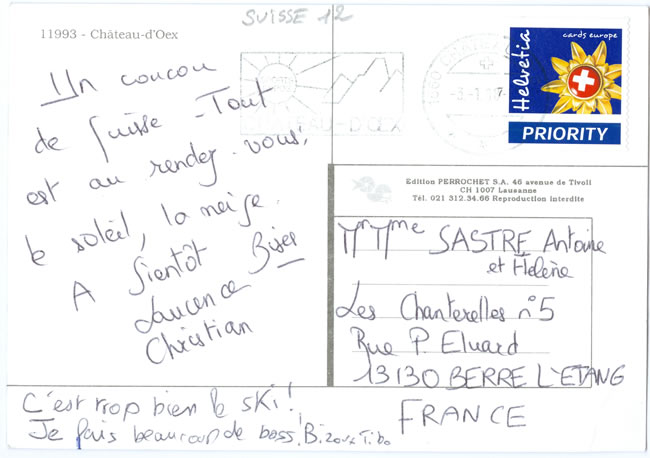 SUISSE 12
11993 - Château-d'Oex
Un coucou
de Suisse - Tout
est au rendez-vous,
le soleil, la neige.
A Bientôt Bises
Laurence
Christian
C'est trop bien le ski!
Je fais beaucoup de boss, Bizoux Tibo
CHATEAU-D'OEX
cards europe
Helvetia
PRIORITY
Edition PERROCHET S.A. 46 avenue de Tivoli
CH 1007 Lausanne
Tél. 021 312.34.66 Reproduction interdite
Mr Mme SASTRE Antoine
et Hélène
Les Chanterelles n°5
Rue P. Eluard
13130 BERRE L'ETANG
FRANCE